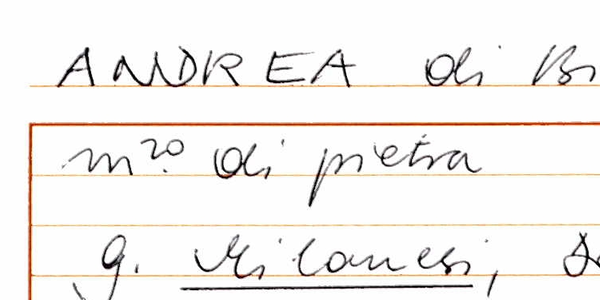 ANDREA di
m.ro di pietra
g. Milanesi,